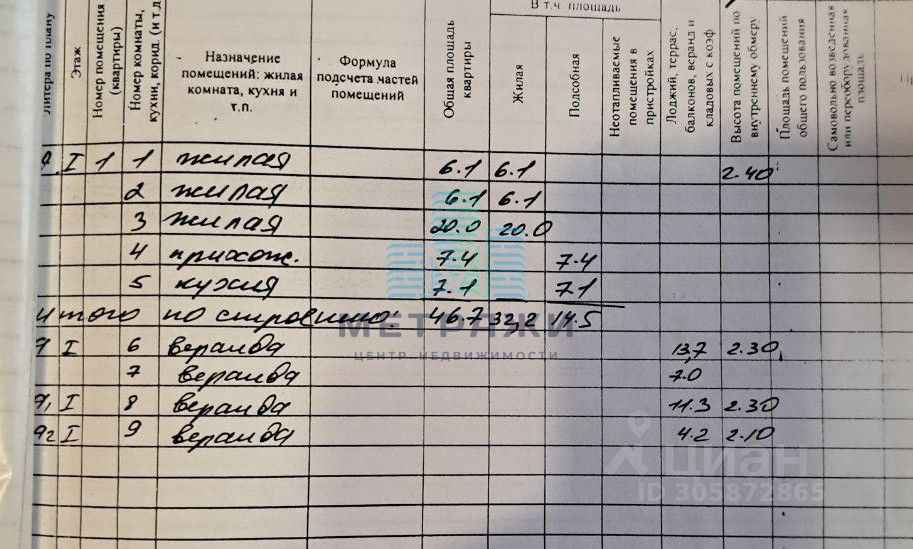 В т.ч. площадь
Литера по плану
Этаж
Номер помещения (квартиры)
Номер комнаты, кухни, корид. (и т.д.
Назначение
помещений: жилая
комната, кухня и
т.п.
Формула
подсчета частей
помещений
Общая площадь квартиры
Жилая
Подсобная
Неотапливаемые помещения в пристройках
Лоджий, террас, балконов, веранд и кладовых с коэф
Высота помещений по внутреннему обмеру
Площадь помещений общего пользования
Самовольно возведенная или переоборудованная площадь
I 1 1 жилая 6.1 6.1 2.40
2 жилая 6.1 6.1
3 жилая 20.0 20.0
4 прихож. 7.4 7.4
5 кухня 7.1 7.1
итого по строению: 46.7 32,2 14.5
МЕТРАЖИ
ЦЕНТР НЕДВИЖИМОСТИ
I 6 веранда 13,7 2.30
7 веранда 7.0
I 8 веранда 11.3 2.30
I 9 веранда 4.2 2.10
циан
ID 305872865